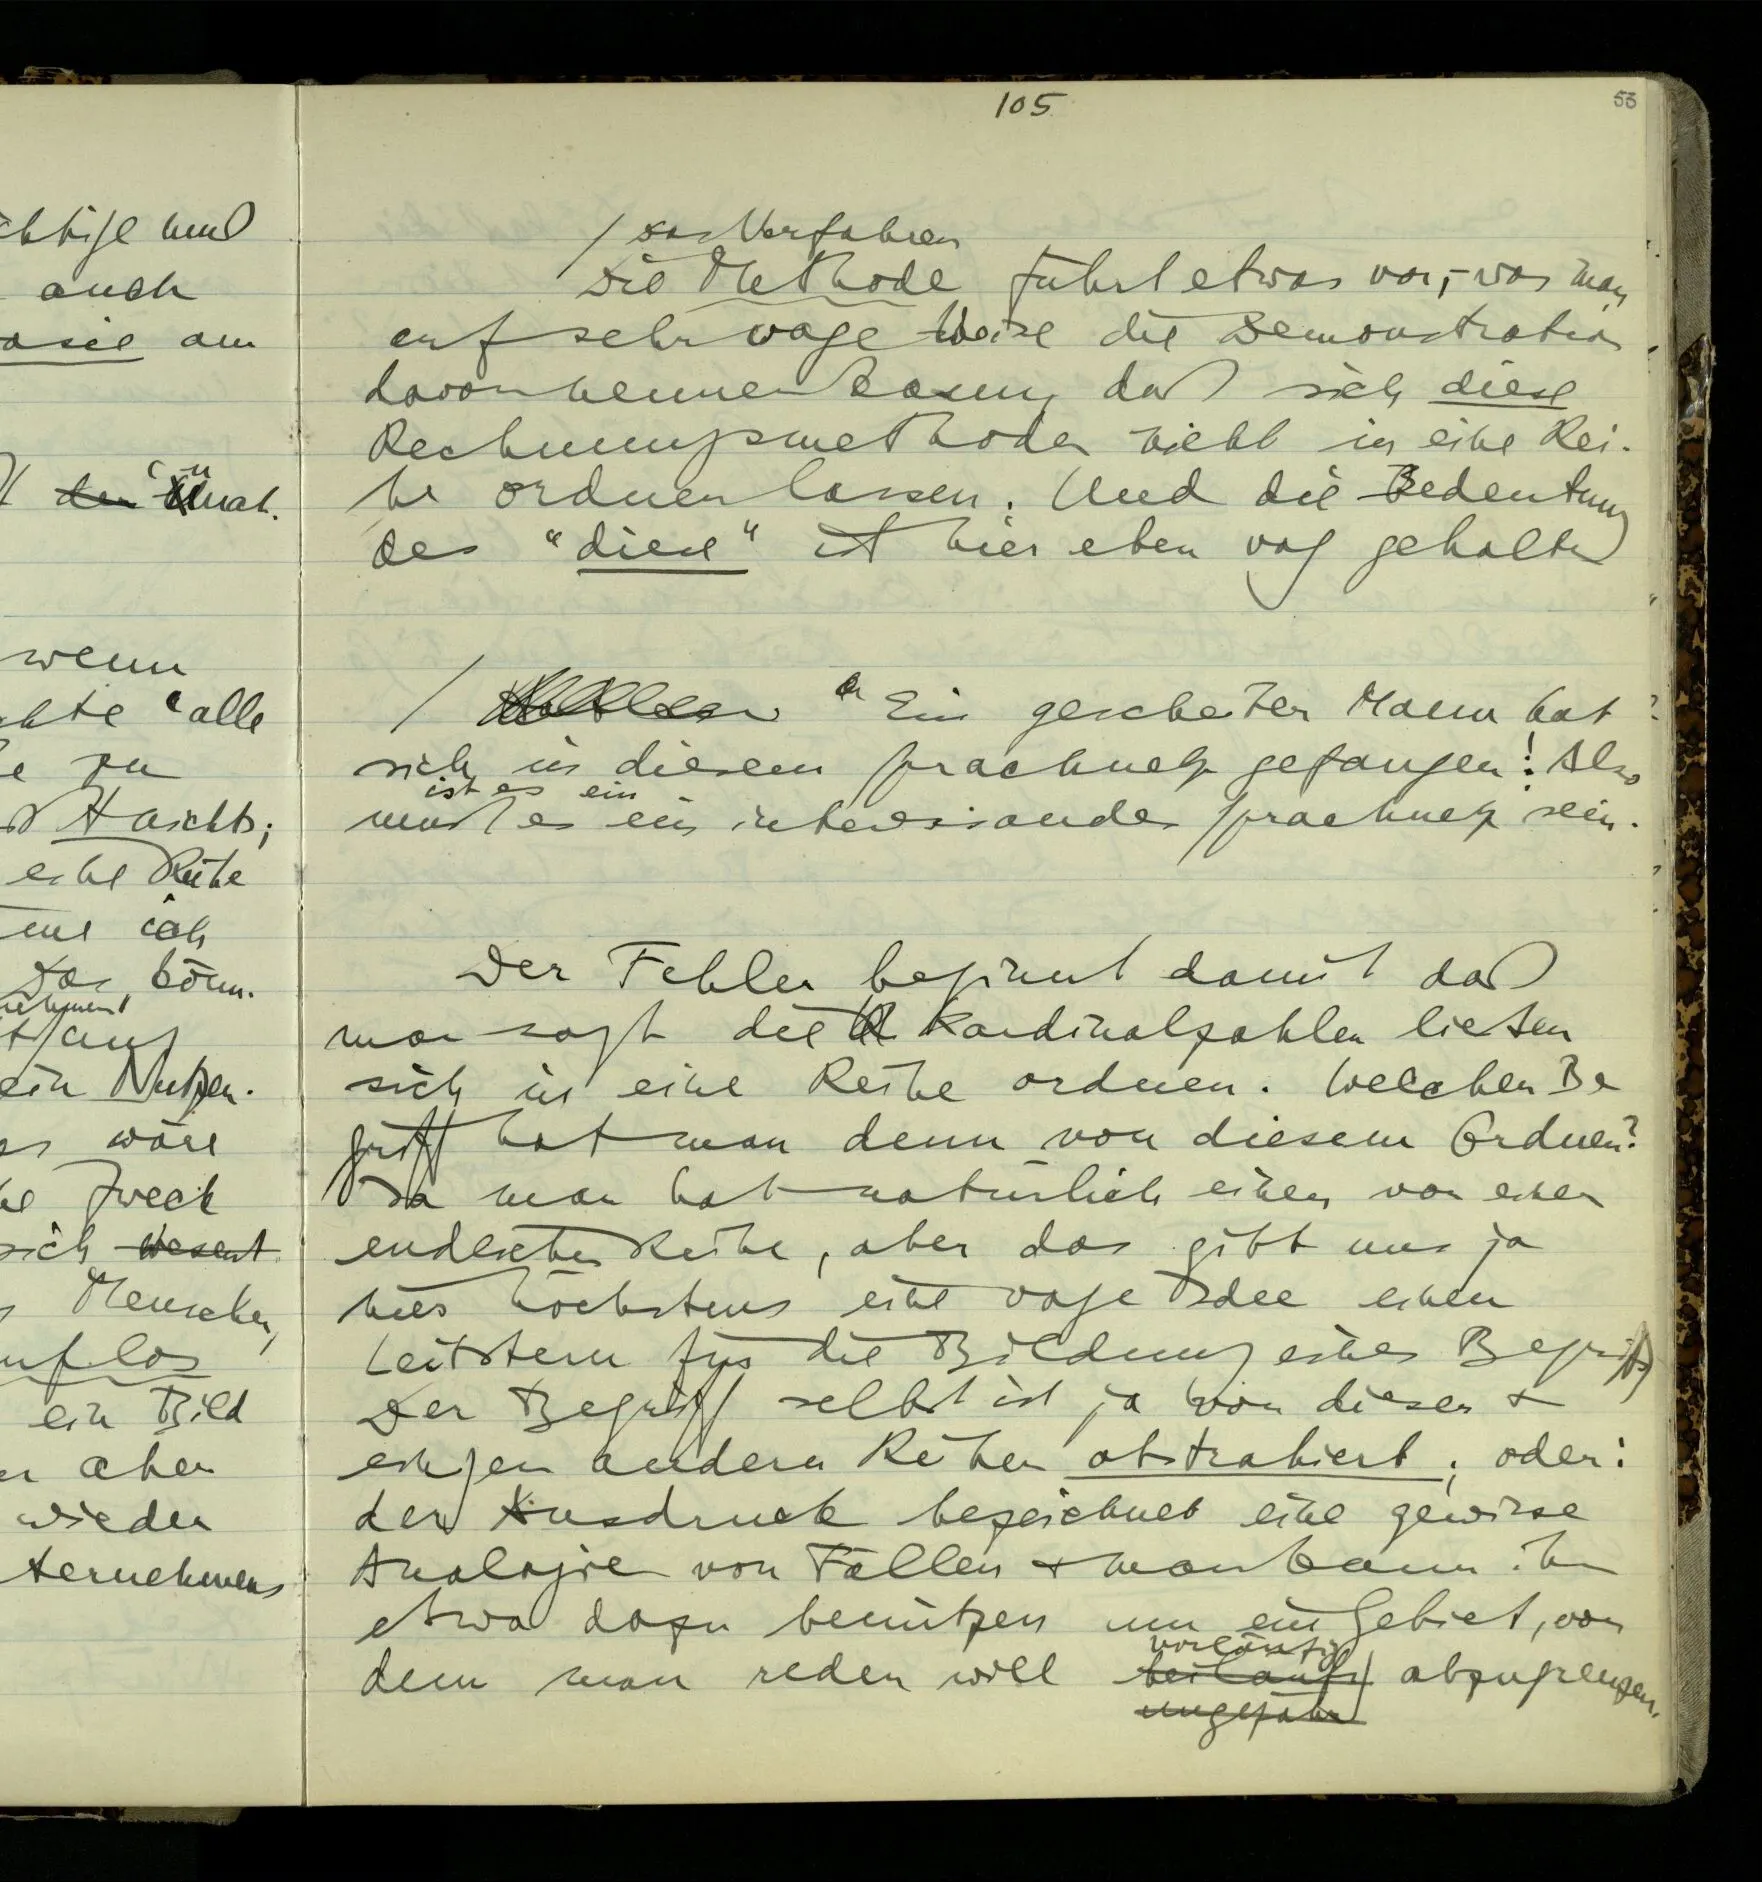 105
53
chtige und
auch
asie am
den Ünat.
wenn
chte "alle
e zu
Haschb;
eine Reihe
ich
das könn.
nehmen
ein Nutzen.
es wäre
Zweck
sich wesent
Menschen,
uflos
ein Bild
er aber
wieder
ternehmens
/ das Verfahren
Die Methode führt etwas vor, – was man
auf sehr vage Weise die Demonstration
davon nennen kann, daß sich diese
Rechnungsmethoden nicht in eine Rei-
he ordnen lassen. Und die Bedeutung
des "diese" ist hier eben vag gehalten
/ "Ein gescheiter Mann hat
sich in diesem Sprachnetz gefangen! Also
ist es ein
muß es ein interessantes Sprachnetz sein.
Der Fehler beginnt damit daß
man sagt die Kardinalzahlen ließen
sich in eine Reihe ordnen. Welchen Be
griff hat man denn von diesem Ordnen?
Ja man hat natürlich einen von einer
endlichen Reihe, aber das gibt uns ja
hier höchstens eine vage Idee einen
Leitstern für die Bildung eines Begriffs
Der Begriff selbst ist ja von dieser &
einigen andern Reihen abstrahiert; oder:
der Ausdruck bezeichnet eine gewisse
Analogie von Fällen & man kann ihn
etwa dazu benützen um ein Gebiet, von
vorläufig
dem man reden will beiläufig abzugrenzen.
ungefähr